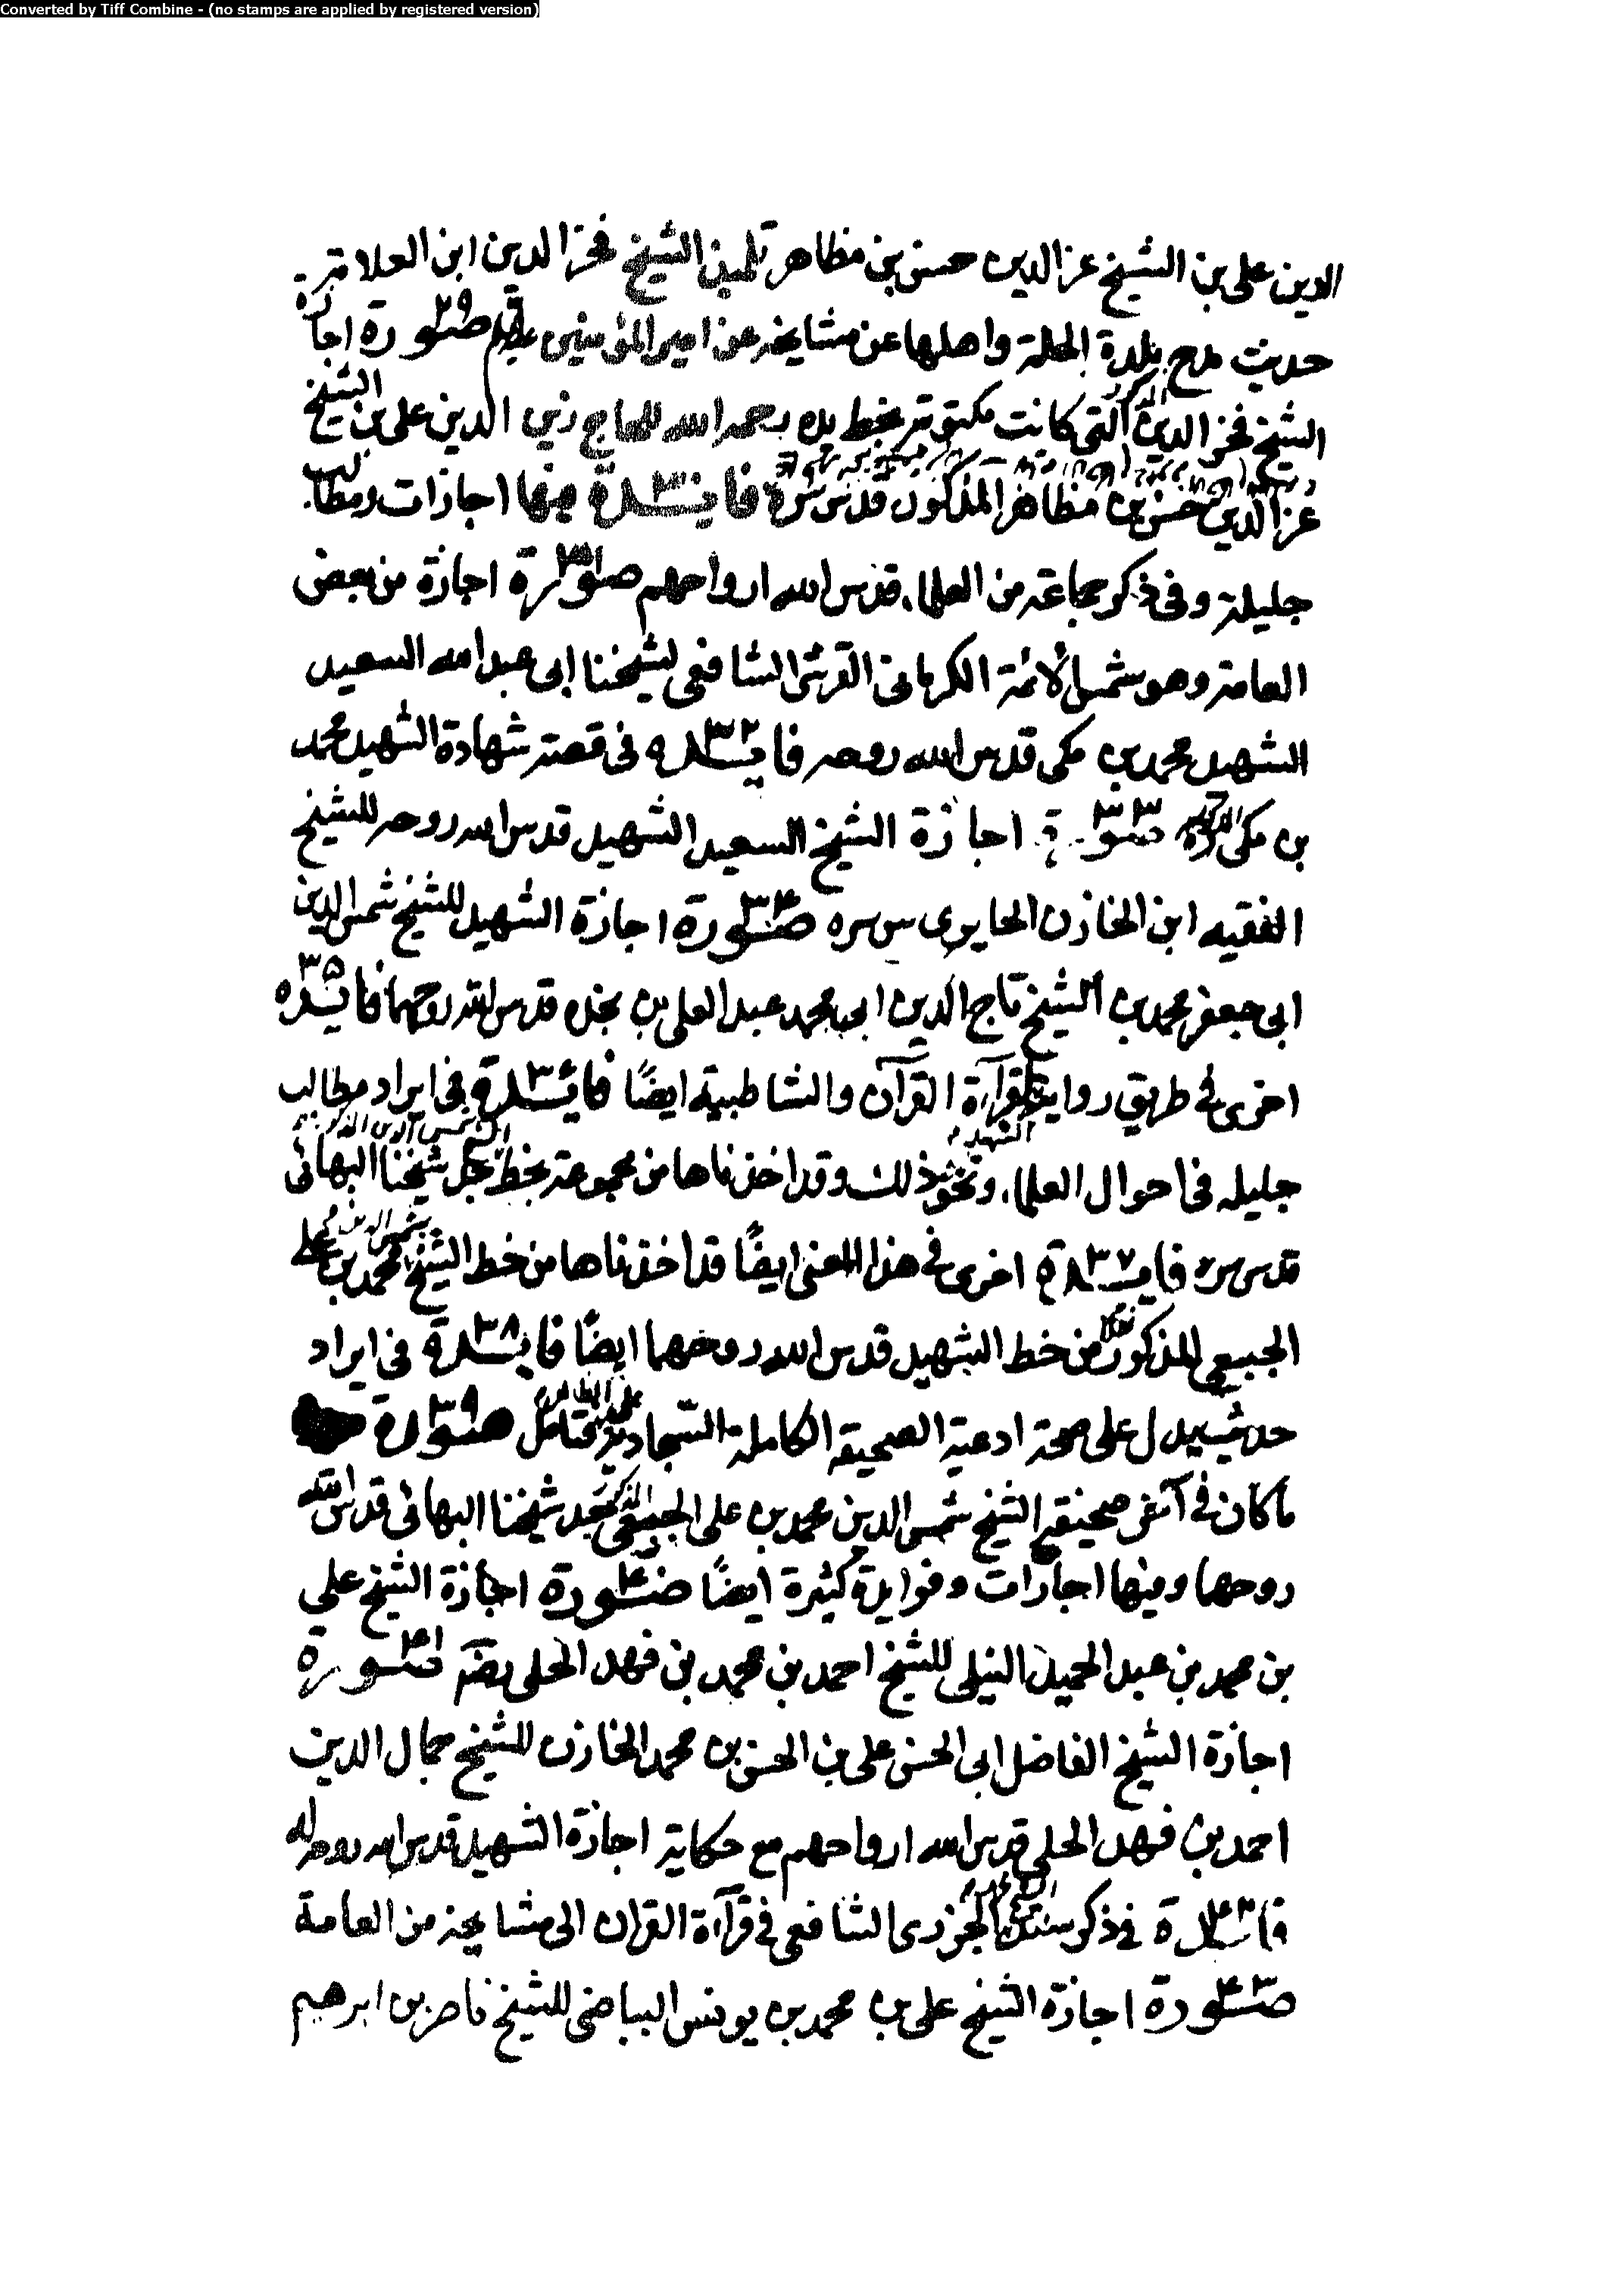 Converted by Tiff Combine - (no stamps are applied by registered version)
الدين على بن الشيخ عز الدين حسن بن مظاهر تلميذ الشيخ فخر الدين ابن العلامة
حديث مدح بلدة الحلة واهلها عن مشايخه عن امير المؤمنين ٢٩ صورة اجازة
الشيخ فخر الدين المذكور التى كانت مكتوبة بخط يده رحمه الله للحاج زين الدين على بن الشيخ
عز الدين حسن بن مظاهر المذكور قدس سره ٣٠ فايدة فيها اجازات ومطالب
جليلة وفى ذكر جماعة من العلماء قدس الله ارواحهم ٣١ صورة اجازة من بعض
العامة وهو شمس الائمة الكرمانى القرشى الشافعى لشيخنا ابى عبد الله السعيد
الشهيد محمد بن مكى قدس الله روحه ٣٢ فايدة فى قصة شهادة الشهيد محمد
بن مكى ٣٣ صورة اجازة الشيخ السعيد الشهيد قدس الله روحه للشيخ
الفقيه ابن الخازن الحايرى س سره ٣٤ صورة اجازة الشهيد للشيخ شمس الدين
ابى جعفر محمد بن الشيخ تاج الدين ابى محمد عبد العلى بن نجده قدس الله روحهما ٣٥ فايده
اخرى فى طريق رواية الشهيد لقراءة القرآن والشاطبية ايضًا ٣٦ فايدة فى ايراد مطالب
جليله فى احوال العلماء ونحو ذلك وقد اخذناها من مجموعة بخط الشيخ شمس الدين جد شيخنا البهائى
قدس سره ٣٧ فايدة اخرى فى هذا المعنى ايضًا قد اخذناها من خط الشيخ شمس الدين محمد بن على
الجبعى المذكور نقلا من خط الشهيد قدس الله روحهما ايضًا ٣٨ فايدة فى ايراد
حديث يدل على صحة ادعية الصحيفة الكاملة السجادية فتامل ٣٩ صورة
ما كان فى آخر صحيفة الشيخ شمس الدين محمد بن على الجبعى المذكور جد شيخنا البهائى قدس الله
روحهما وفيها اجازات وفوايد كثيرة ايضًا ٤٠ صورة اجازة الشيخ على
بن محمد بن عبد الحميد النيلى للشيخ احمد بن محمد بن فهد الحلى ٤١ صورة
اجازة الشيخ الفاضل ابى الحسن على بن الحسن بن محمد الخازن للشيخ جمال الدين
احمد بن فهد الحلى قدس الله ارواحهم مع حكاية اجازة الشهيد قدس الله روحه له
٤٢ فايدة فى ذكر سند الجزرى الشافعى فى قرآءة القران الى مشايخه من العامة
٤٣ صورة اجازة الشيخ على بن محمد بن يونس البياضى للشيخ ناصر بن ابرهيم